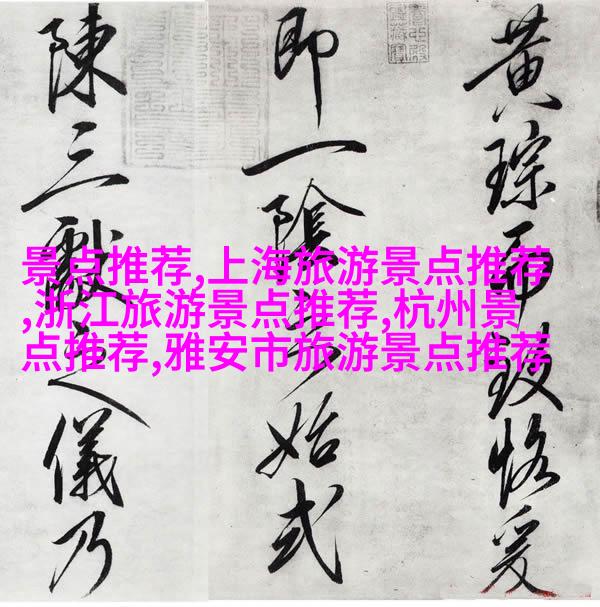 景点推荐,上海旅游景点推荐
,浙江旅游景点推荐,杭州景
点推荐,雅安市旅游景点推荐
黄琮而恪爰
即一陰之始式
陳三獻之儀乃